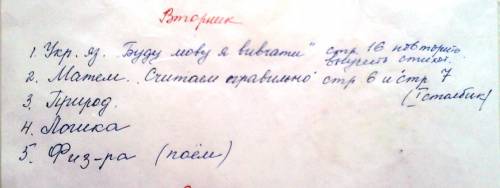 Вторник
1. Укр. яз. Буду мову я вивчати" стр 16 повторить
выучить стихот.
2. Матем. Считаем правильно стр 6 и стр 7
(I столбик)
3. Природ.
4. Логика
5. Физ-ра (поём)